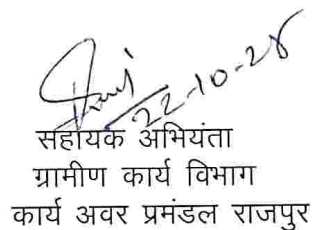 22-10-25
सहायक अभियंता
ग्रामीण कार्य विभाग
कार्य अवर प्रमंडल राजपुर